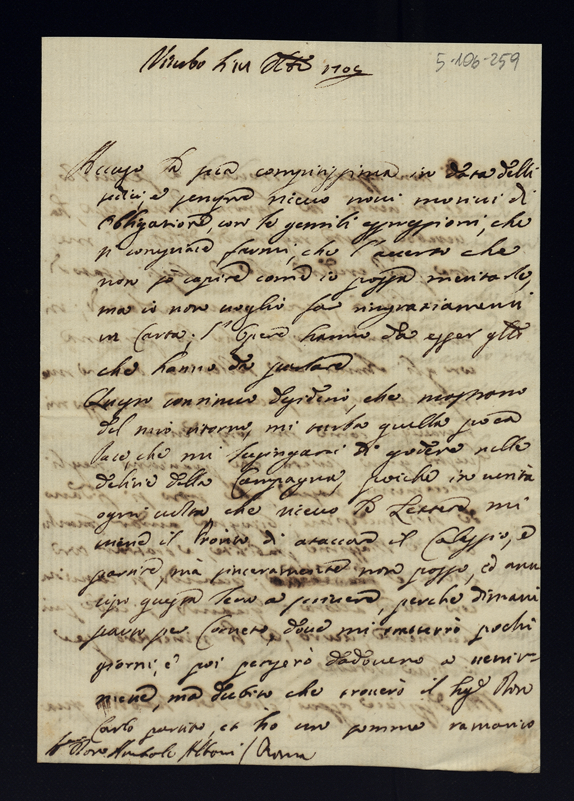 5-106-259
Viterbo li 14 1705
Accuso la sua compitissima in data delli
sempre ricevo novi motivi di
obligatione, con le gentili espressioni, che
si compiace farmi, che l'accerto che
non sò capire come io possa meritarle,
ma io non voglio far ringraziamenti
in Carta; l'Opere hanno da esser
che hanno da parlare
Questi continui desiderii, che mostrano
del mio ritorno, mi turba quella poca
pace, che mi lusingavo di godere nelle
delizie della Campagna, poiche in verità
ogni volta che ricevo la Lettera mi
viene il di attaccare il Calesse, e
partire, ma sinceramente non posso, ed
questa sera a perche dimani
per Corneto, dove mi tratterrò pochi
giorni, e poi penserò dadovero a venir-
mene, ma dubito che troverò il
Carlo partito, et ho un sommo ramarico
Annibale Albani / Roma